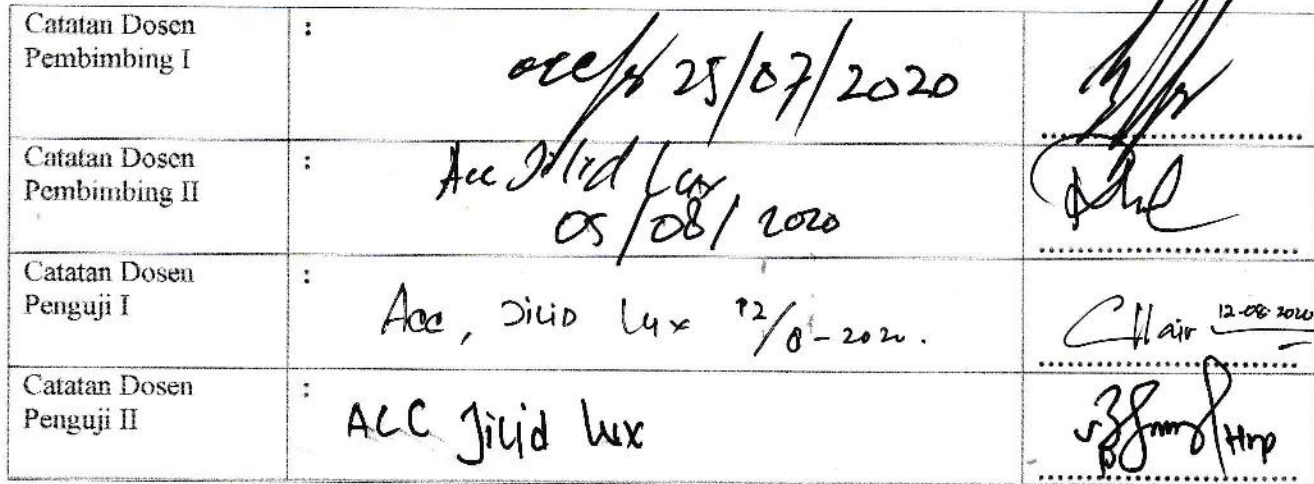 Catatan Dosen
Pembimbing I
:
acc 25/07/2020
Catatan Dosen
Pembimbing II
:
Acc Jilid Lux
05/08/2020
Catatan Dosen
Penguji I
:
Acc, Jilid Lux 12/8-2020.
12-08-2020
Catatan Dosen
Penguji II
:
ACC Jilid Lux